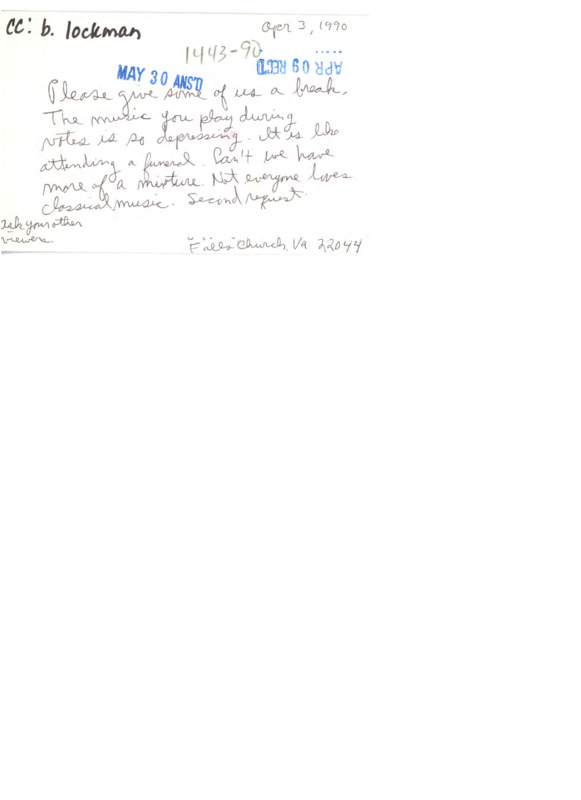 cc: b. lockman
Apr 3, 1990
1443-90
APR 09 REC'D
MAY 30 ANS'D
Please give some of us a break.
The music you play during
votes is so depressing. It is like
attending a funeral. Can't we have
more of a mixture. Not everyone loves
classical music. Second request.
ask your other
viewers
Falls Church, Va 22044